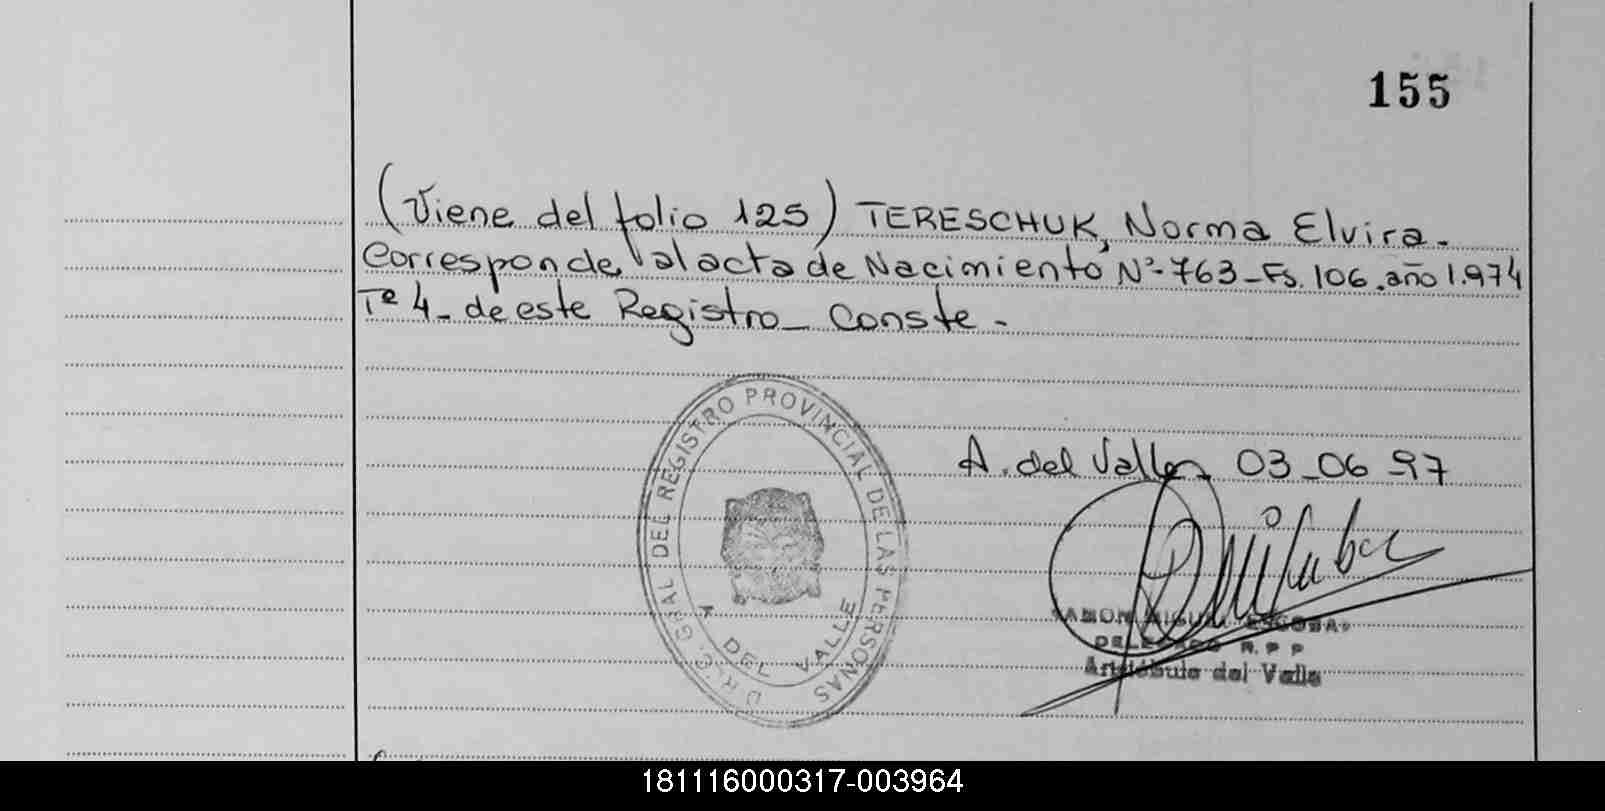 155
(Viene del folio 125) TERESCHUK, Norma Elvira.
Corresponde al acta de Nacimiento Nº 763 - Fs. 106. año 1.974
Tº 4 - de este Registro - Conste -
DIREC. GRAL DEL REGISTRO PROVINCIAL DE LAS PERSONAS
A DEL VALLE
A. del Valle 03-06-97
RAMON MIGUEL ESCOBAR
DELEGADO R. P P
Aristóbulo del Valle
181116000317-003964